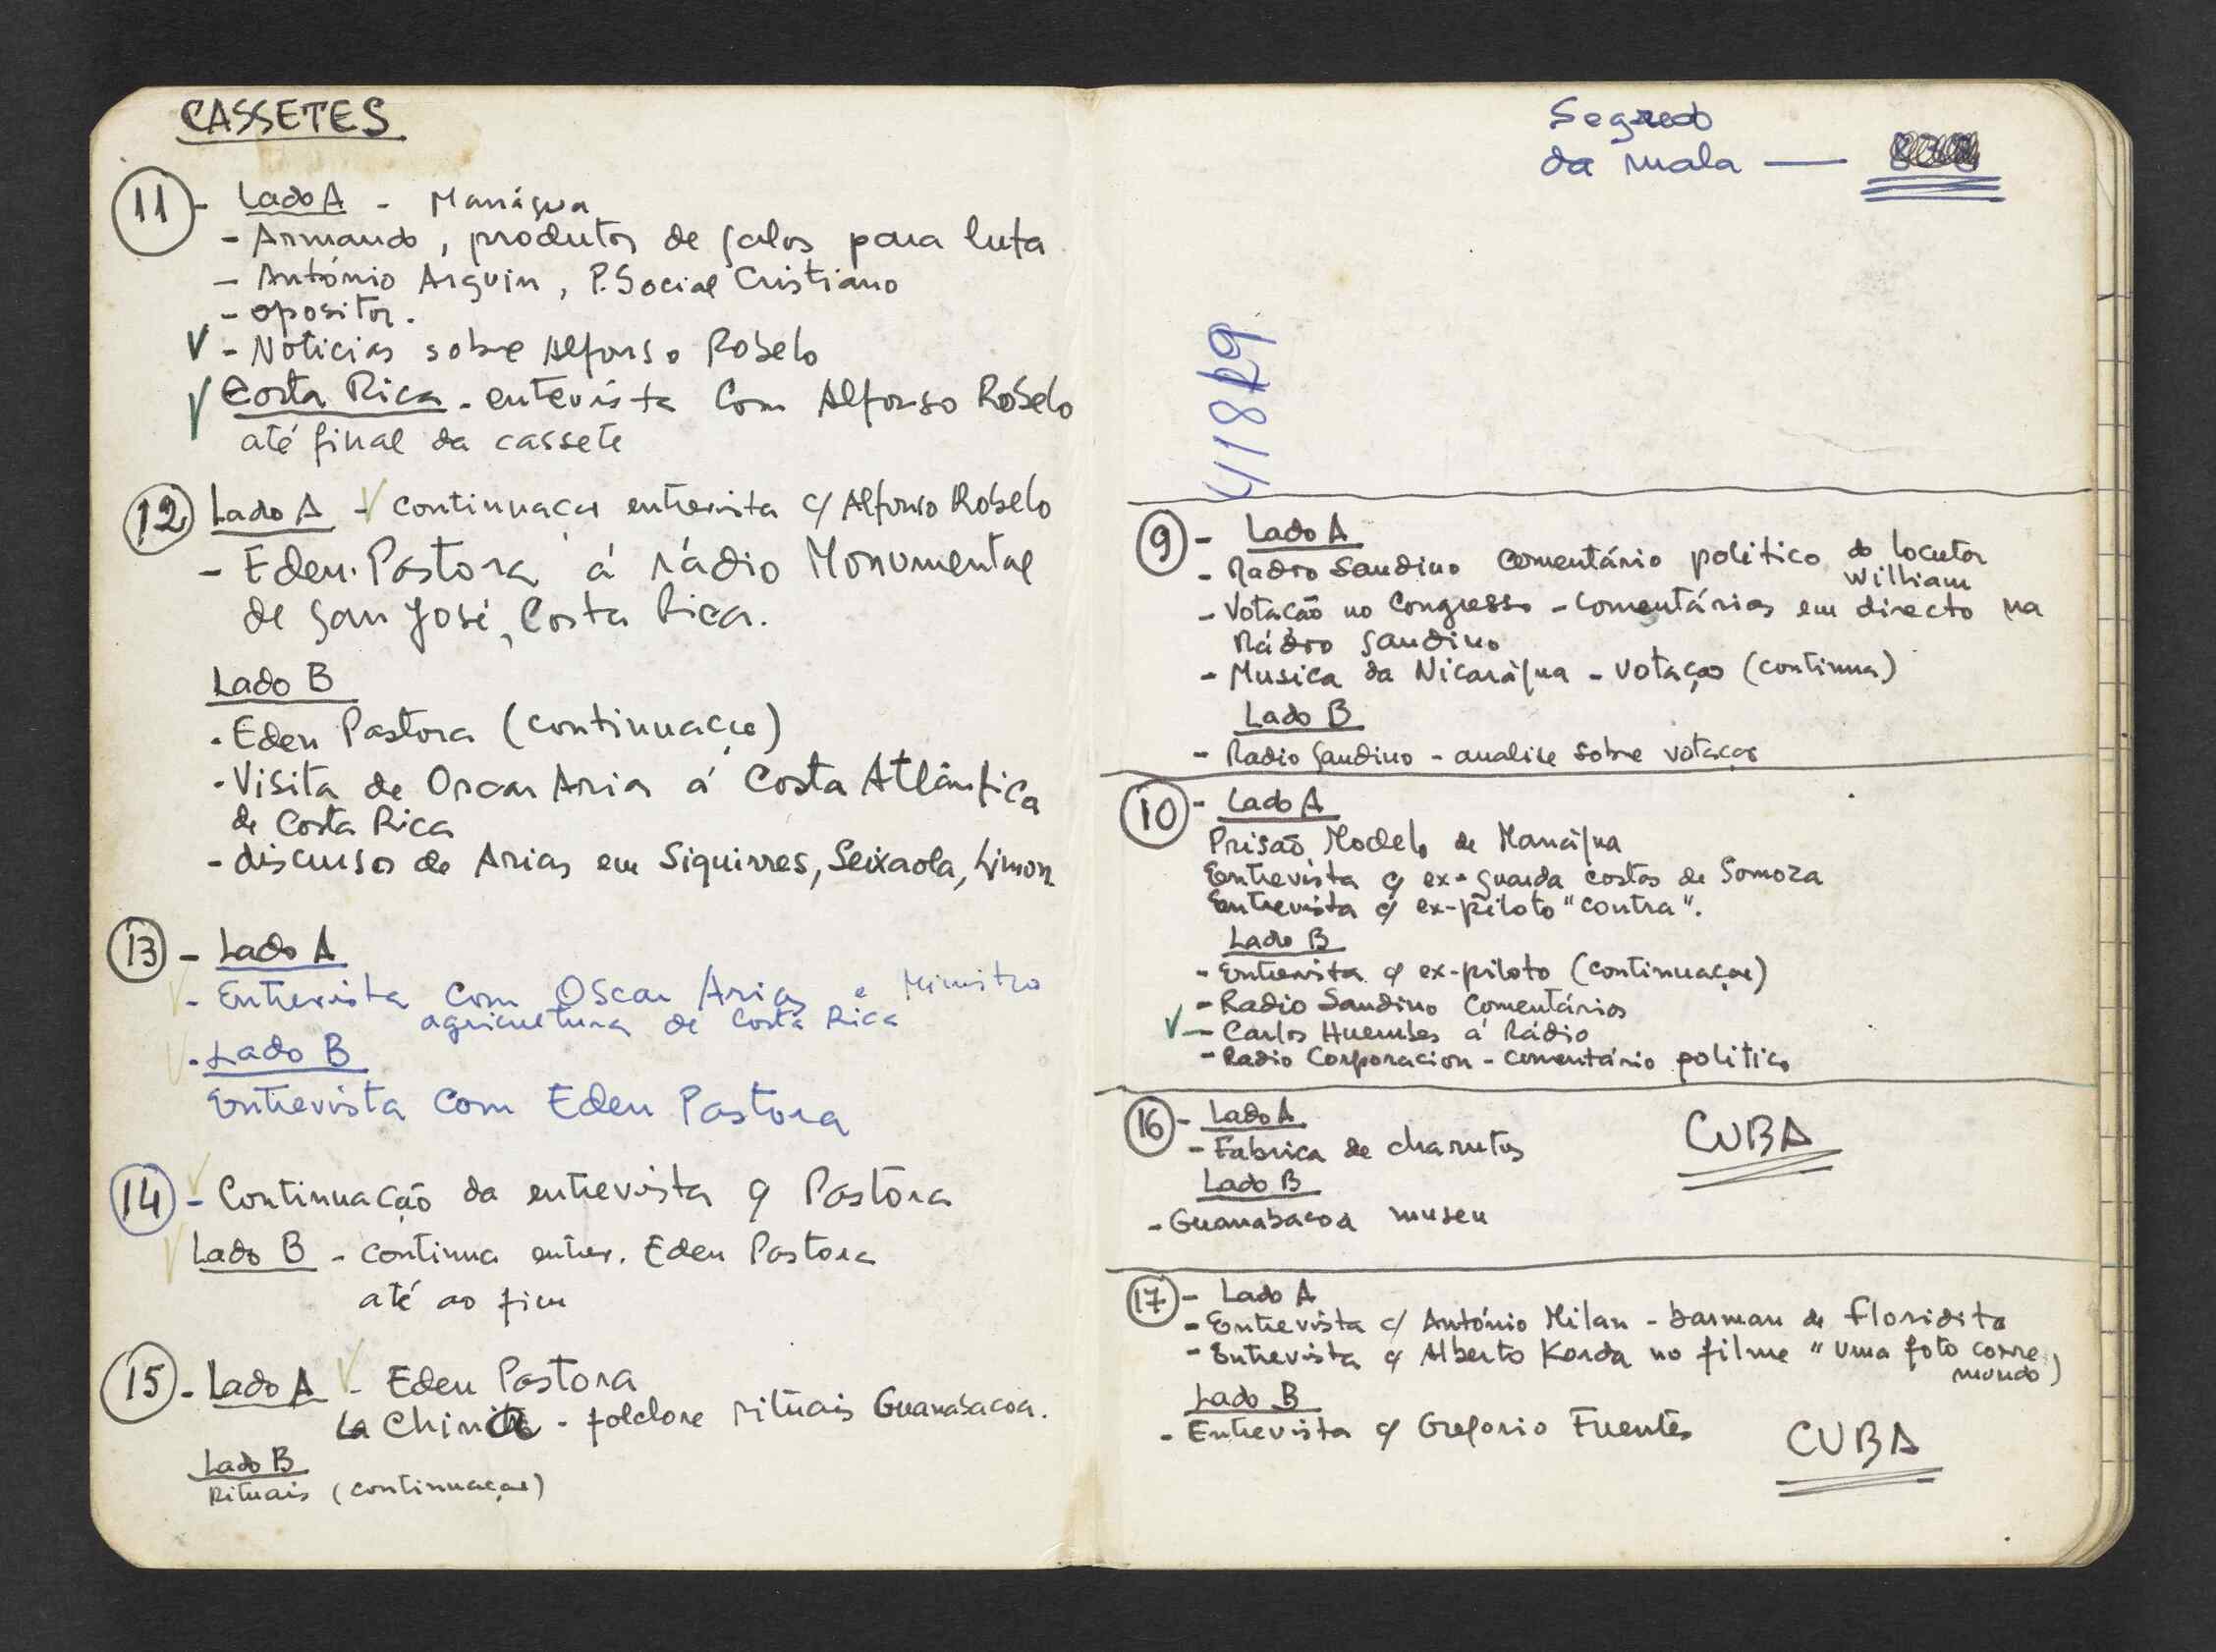 CASSETES
11 - Lado A - Manágua
- Armando, produtor de galos para luta
- António Arguin, P. Social Cristiano
- opositor.
V - Noticias sobre Alfonso Robelo
V Costa Rica - entevista com Alfonso Robelo
até final da cassete
12 Lado A - V continuação entrevista c/ Alfonso Robelo
- Eden Pastora á rádio Monumental
de San José, Costa Rica.
Lado B
- Eden Pastora (continuação)
- Visita de Oscar Aria á Costa Atlântica
de Costa Rica
- discurso de Arias em Siquirres, Seixaola, Limon
13 - Lado A
- Entrevista com Oscar Arias e Ministro
agricultura de Costa Rica
- Lado B
Entrevista com Eden Pastora
14 - Continuação da entrevista c/ Pastora
Lado B - continua entrev. Eden Pastora
até ao fim
15 - Lado A - Eden Pastora
La China - folclore rituais Guanabacoa.
Lado B
Rituais (continuação)
Segredo
da mala —
9 - Lado A
- Radio Sandino comentário politico do locutor
William
- Votação no Congresso - comentários em directo na
Rádio Sandino
- Musica da Nicarágua - votação (continua)
Lado B
- Radio Sandino - analise sobre votação
10 - Lado A
Prisão Modelo de Manágua
Entrevista c/ ex-guarda costas de Somoza
Entrevista c/ ex-piloto "contra".
Lado B
- Entrevista c/ ex-piloto (continuação)
- Radio Sandino comentários
V - Carlos Huembes á Rádio
- Radio Corporacion - comentário politico
16 - Lado A
- Fabrica de charutos
CUBA
Lado B
- Guanabacoa museu
17 - Lado A
- Entrevista c/ António Milan - barman de Floridita
- Entrevista c/ Alberto Korda no filme "uma foto corre
mundo)
Lado B
- Entrevista c/ Gregorio Fuentes
CUBA